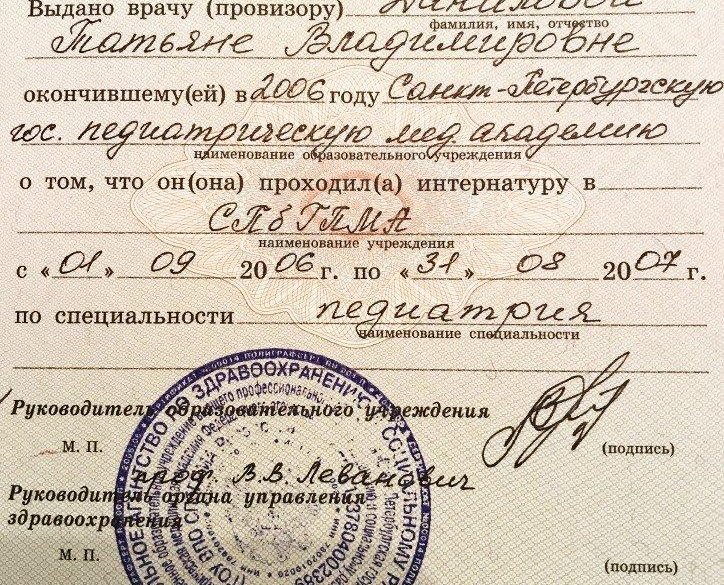 Выдано врачу (провизору) Даниловой
фамилия, имя, отчество
Татьяне Владимировне
окончившему(ей) в 2006 году Санкт-Петербургскую
гос. педиатрическую мед. академию
наименование образовательного учреждения
о том, что он(она) проходил(а) интернатуру в
СПбГПМА
наименование учреждения
с «01» 09 2006 г. по «31» 08 2007 г.
по специальности педиатрия
наименование специальности
Руководитель образовательного учреждения
М. П.
(подпись)
проф В.В. Леванович
Руководитель органа управления
здравоохранения
М. П.
(подпись)
ПО ЗДРАВООХРАНЕНИЮ И СОЦИАЛЬНОМУ